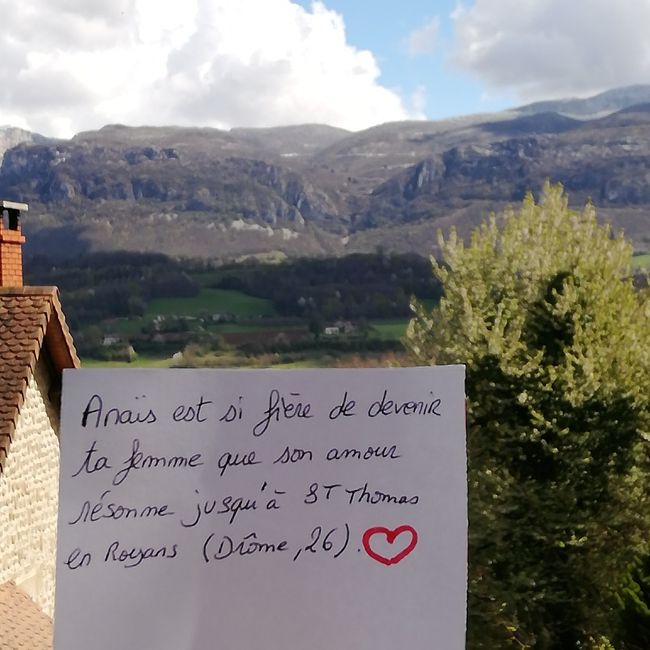 Anaïs est si fière de devenir
ta femme que son amour
résonne jusqu'à ST Thomas
en Royans (Drôme, 26).